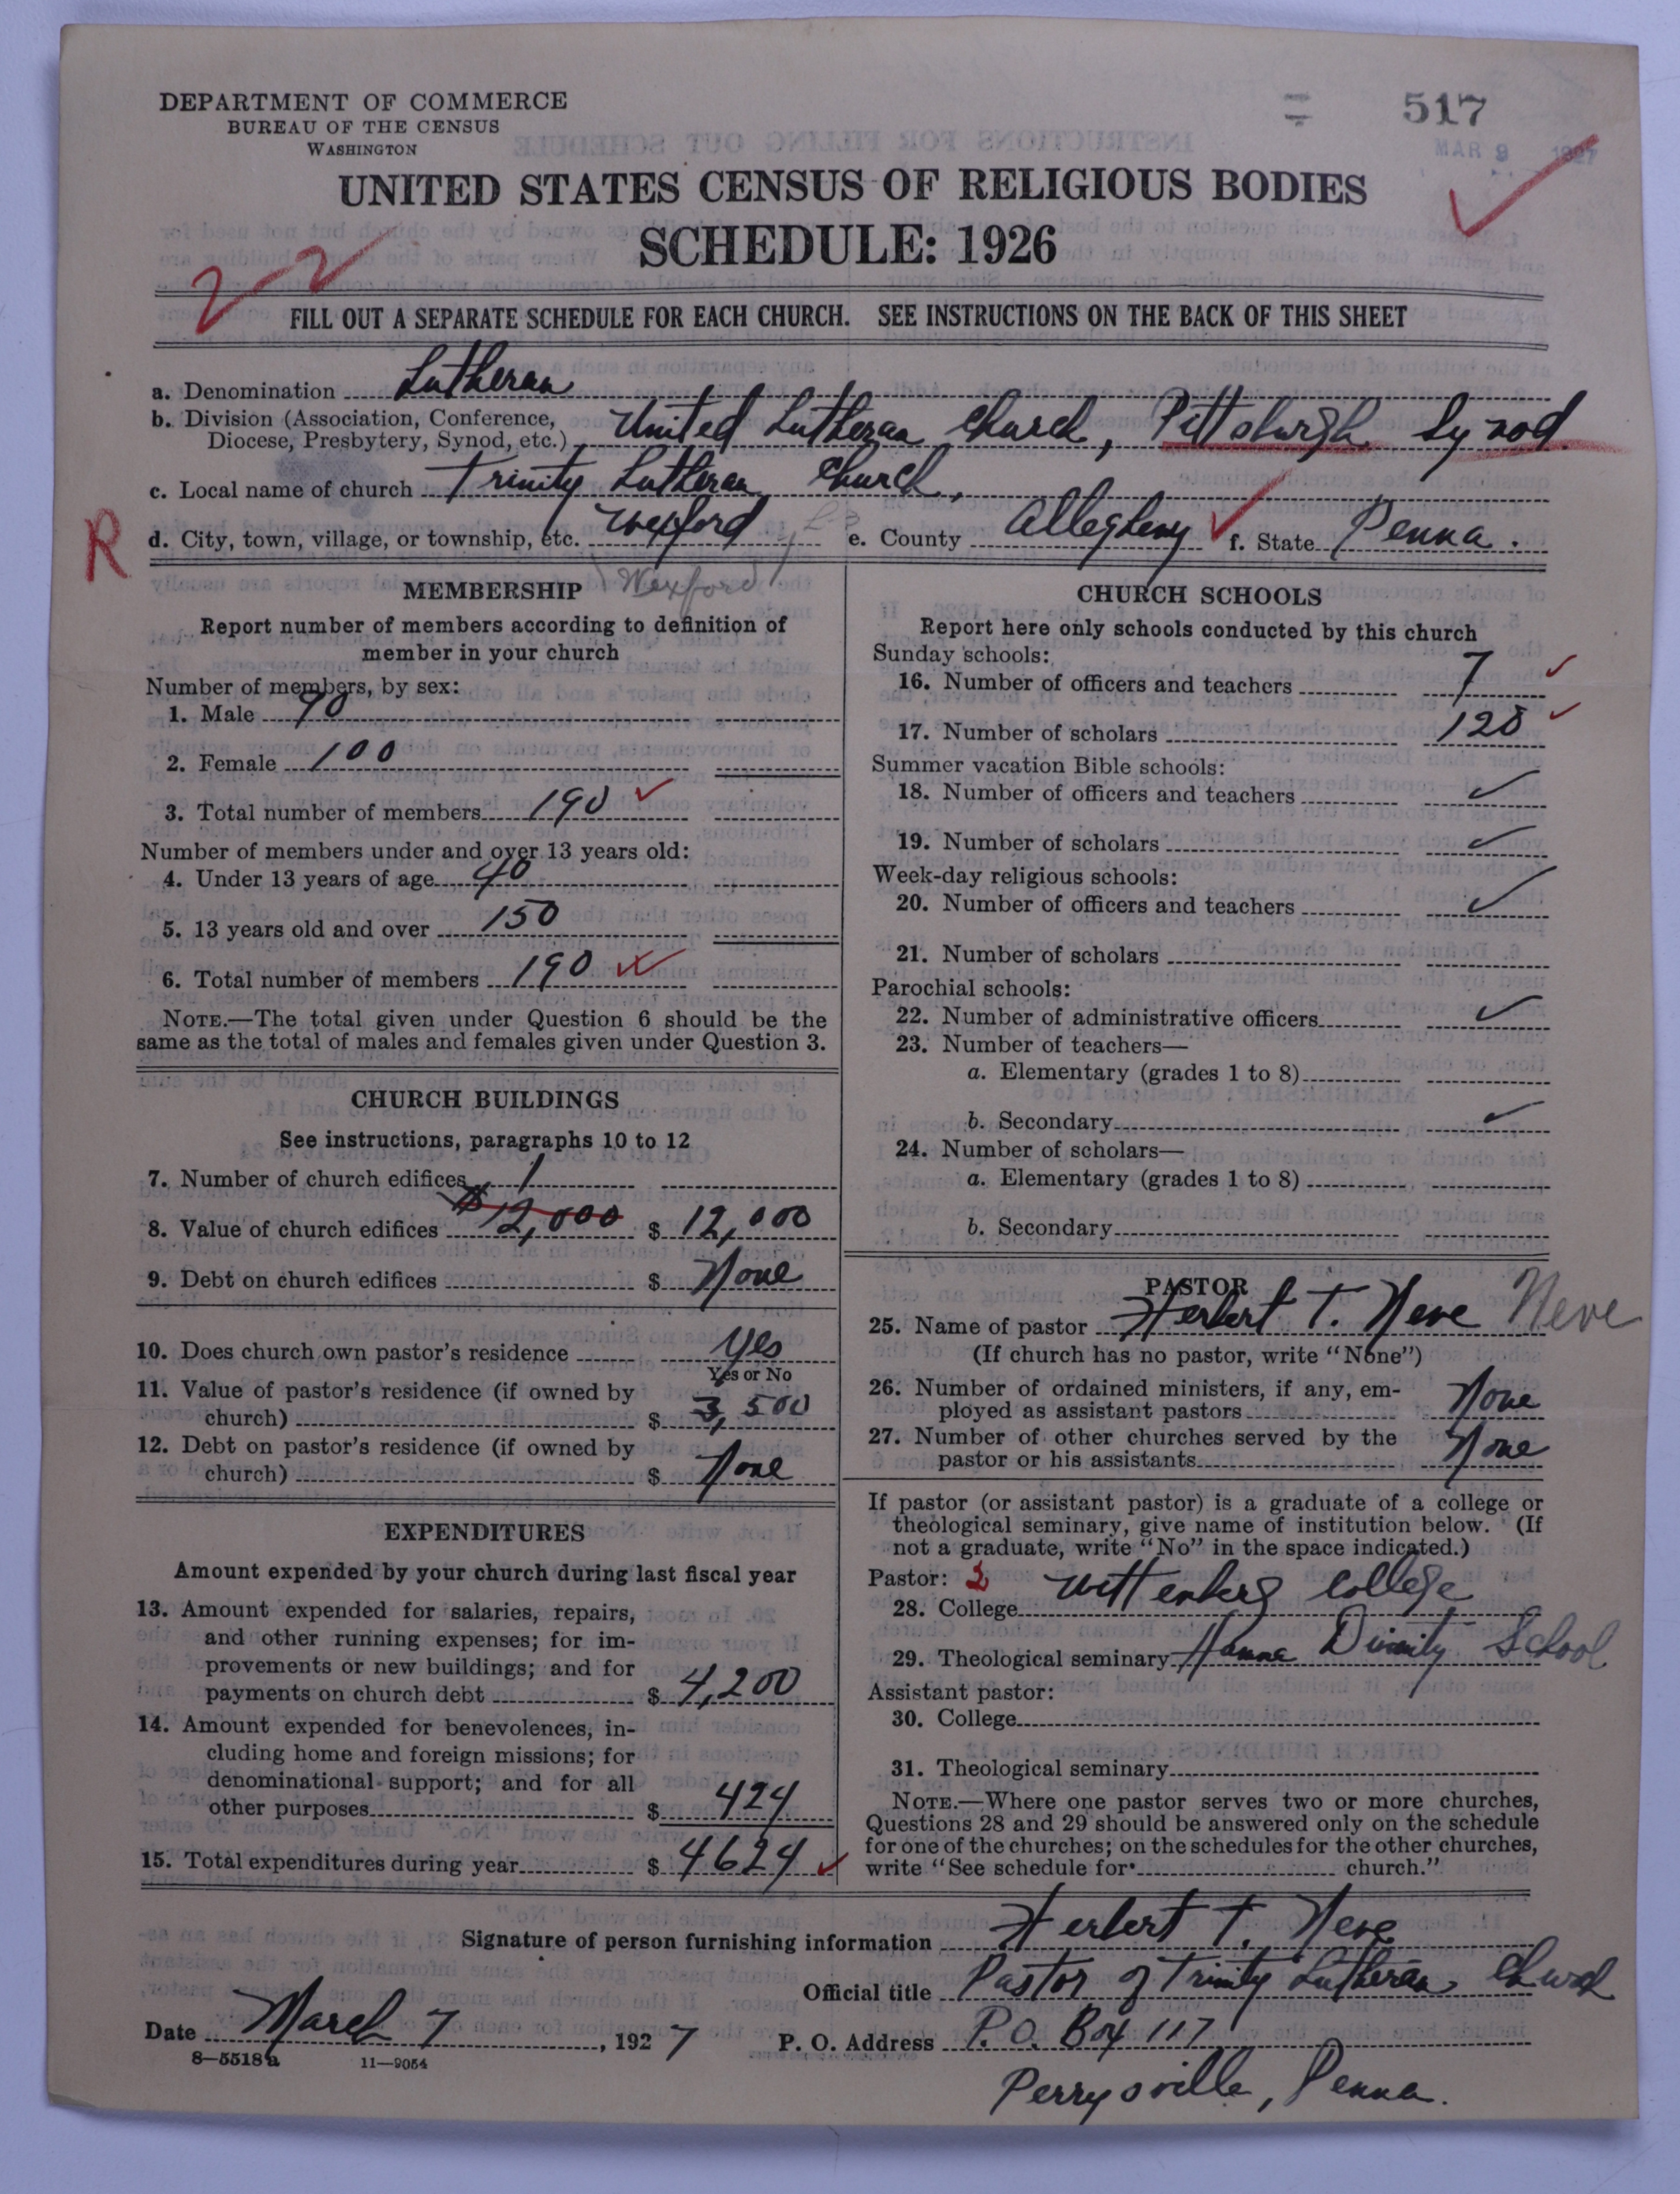 DEPARTMENT OF COMMERCE
BUREAU OF THE CENSUS
WASHINGTON
517
MAR 9 1927
UNITED STATES CENSUS OF RELIGIOUS BODIES
SCHEDULE: 1926
2-2
FILL OUT A SEPARATE SCHEDULE FOR EACH CHURCH. SEE INSTRUCTIONS ON THE BACK OF THIS SHEET
a. Denomination Lutheran
b. Division (Association, Conference, Diocese, Presbytery, Synod, etc.) United Lutheran Church, Pittsburgh Synod.
c. Local name of church Trinity Lutheran Church,
R
d. City, town, village, or township, etc. Wexford e. County Allegheny f. State Penna.
(Wexford)
MEMBERSHIP
Report number of members according to definition of
member in your church
Number of members, by sex:
1. Male 90
2. Female 100
3. Total number of members 190
Number of members under and over 13 years old:
4. Under 13 years of age 40
5. 13 years old and over 150
6. Total number of members 190
NOTE.—The total given under Question 6 should be the
same as the total of males and females given under Question 3.
CHURCH BUILDINGS
See instructions, paragraphs 10 to 12
7. Number of church edifices 1
8. Value of church edifices $12,000 $ 12,000
9. Debt on church edifices $ None
10. Does church own pastor's residence Yes
Yes or No
11. Value of pastor's residence (if owned by
church) $ 3,500
12. Debt on pastor's residence (if owned by
church) $ None
EXPENDITURES
Amount expended by your church during last fiscal year
13. Amount expended for salaries, repairs,
and other running expenses; for im-
provements or new buildings; and for
payments on church debt $ 4,200
14. Amount expended for benevolences, in-
cluding home and foreign missions; for
denominational support; and for all
other purposes $ 424
15. Total expenditures during year $ 4624
CHURCH SCHOOLS
Report here only schools conducted by this church
Sunday schools:
16. Number of officers and teachers 7
17. Number of scholars 128
Summer vacation Bible schools:
18. Number of officers and teachers
19. Number of scholars
Week-day religious schools:
20. Number of officers and teachers
21. Number of scholars
Parochial schools:
22. Number of administrative officers
23. Number of teachers—
a. Elementary (grades 1 to 8)
b. Secondary
24. Number of scholars—
a. Elementary (grades 1 to 8)
b. Secondary
PASTOR
25. Name of pastor Herbert T. Neve Neve
(If church has no pastor, write "None")
26. Number of ordained ministers, if any, em-
ployed as assistant pastors None
27. Number of other churches served by the
pastor or his assistants None
If pastor (or assistant pastor) is a graduate of a college or
theological seminary, give name of institution below. (If
not a graduate, write "No" in the space indicated.)
Pastor: 2
28. College Wittenberg College
29. Theological seminary Hamma Divinity School
Assistant pastor:
30. College
31. Theological seminary
NOTE.—Where one pastor serves two or more churches,
Questions 28 and 29 should be answered only on the schedule
for one of the churches; on the schedules for the other churches,
write "See schedule for church."
Signature of person furnishing information Herbert T. Neve
Official title Pastor of Trinity Lutheran Church
Date March 7, 1927 P. O. Address P.O. Box 117
8—5518a 11—9054
Perrysville, Penna.